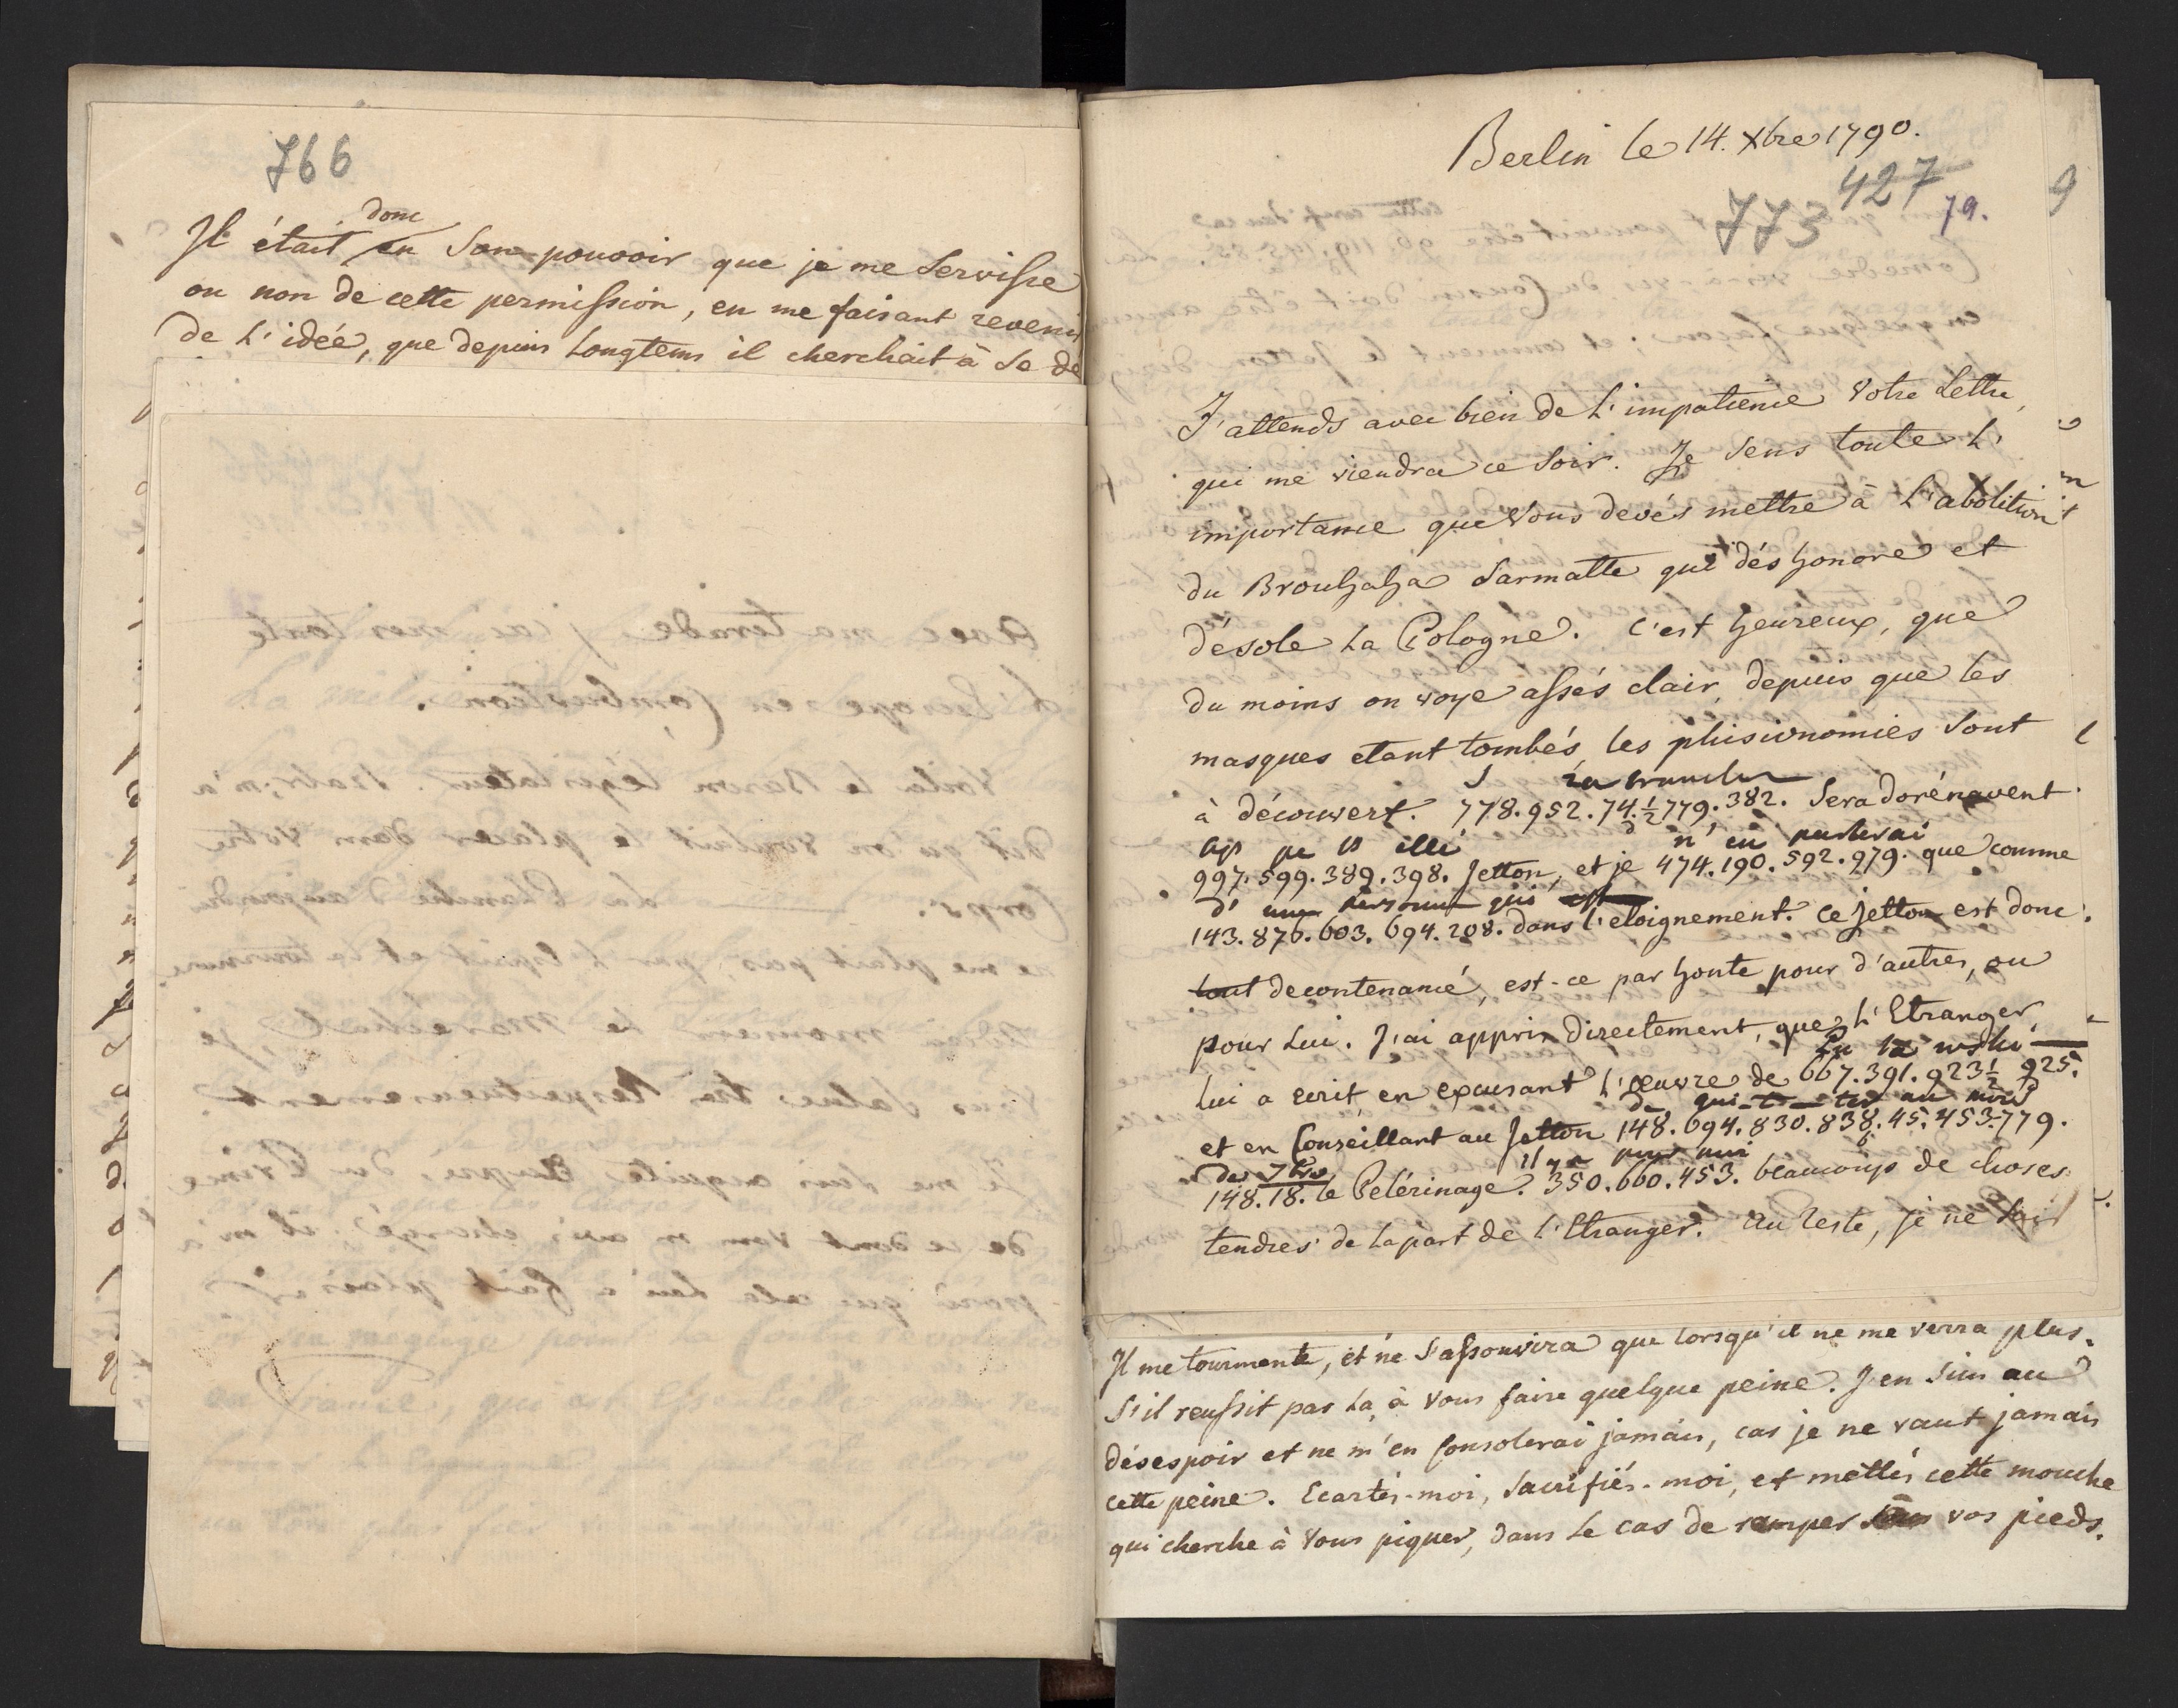 766
donc
Il était en Son pouvoir que je me Servisse
ou non de cette permission, en me faisant revenir
de L'idée, que depuis Longtems il cherchait à Se dé
Berlin le 14. Xbre 1790.
427
773
79.
9
J'attends avec bien de L'impatience Votre Lettre,
qui me viendra ce Soir. Je Sens toute L'
importance que Vous devés mettre à L'abolition
du Brouhaha Sarmatte qui dés honore et
désole La Pologne. C'est heureux, que
du moins on voye assés clair, depuis que les
masques etant tombés, les phisionomies Sont
S La branche
à découvert. 778.952.74.½779.382. Sera dorénavent
n'en parlerai
997.599.389.398. Jetton, et je 474.190.592.979. que comme
d' une personne qui est
143.876.603.694.208. dans l'eloignement. Ce Jetton est donc
tout decontenancé, est-ce par honte pour d'autres, ou
pour Lui. J'ai appris directement, que L'Etranger
Lu
Lui a ecrit en excusant l'œuvre de 667.391.923½ 925.
de qui-t-ter au mois
et en Conseillant au Jetton 148.694.830.838.45.453.779.
de 7bre il y a pour moi
148.18. le Pelérinage. 350.660.453. beaucoup de choses
tendres de la part de L'Etranger. Au reste, je ne Sais
Il me tourmente, et ne S'assouvira que lorsqu'il ne me verra plus.
S'il reussit par La, à Vous faire quelque peine. J'en Suis au
désespoir et ne m'en Consolerai jamais, car je ne vaut jamais
cette peine. Ecartés-moi, Sacrifiés-moi, et mettés cette mouche
qui cherche à Vous piquer, dans Le cas de ramper Sous vos pieds.